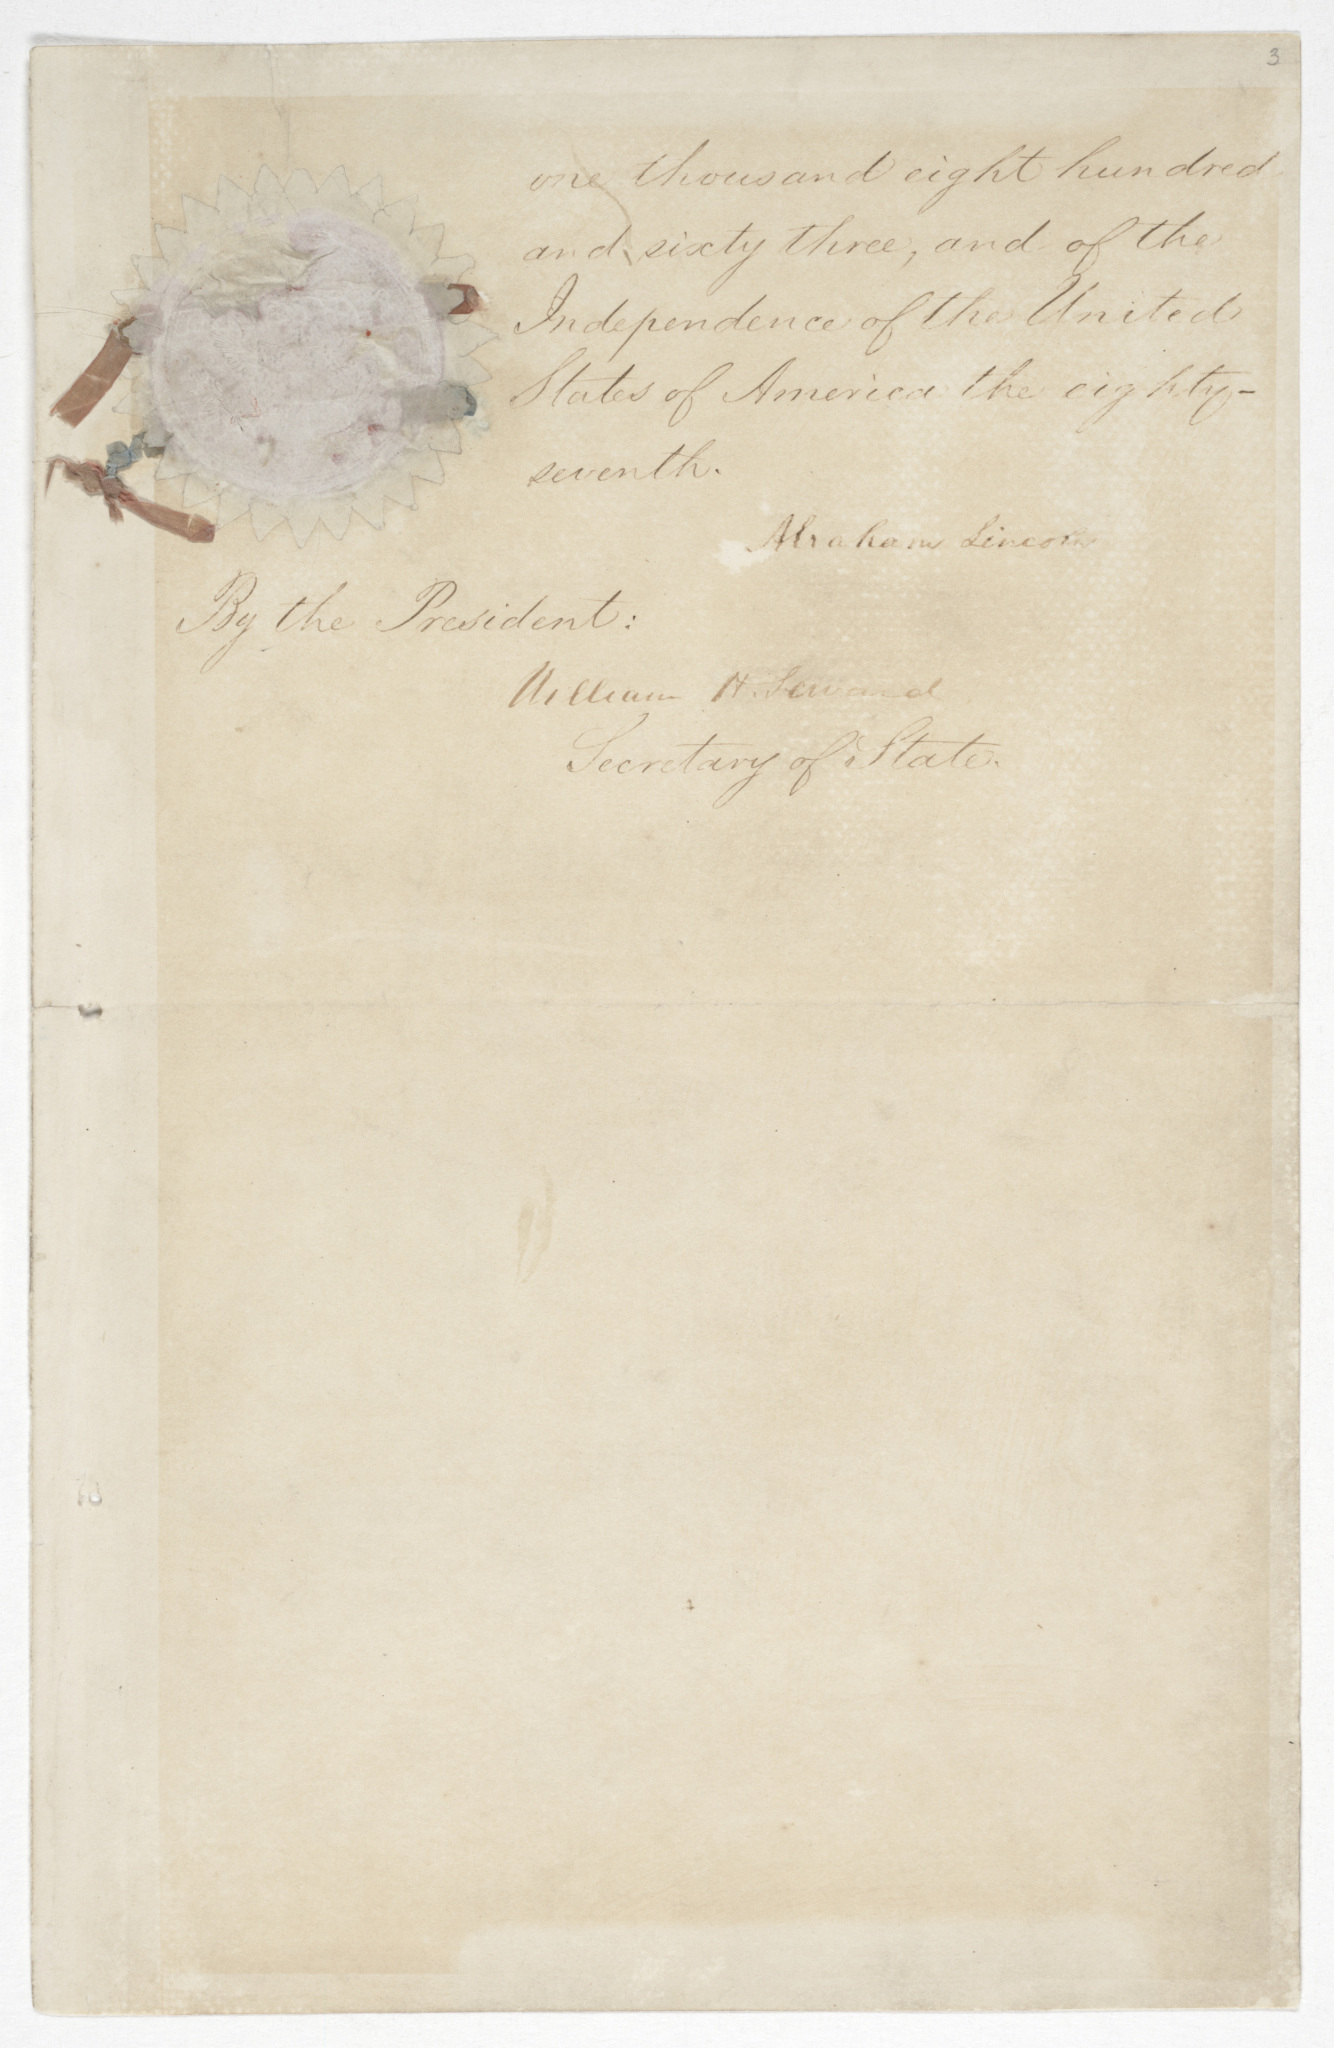 3
one thousand eight hundred
and sixty three, and of the
Independence of the United
States of America the eighty-
seventh.
Abraham Lincoln
By the President:
William H. Seward
Secretary of State.